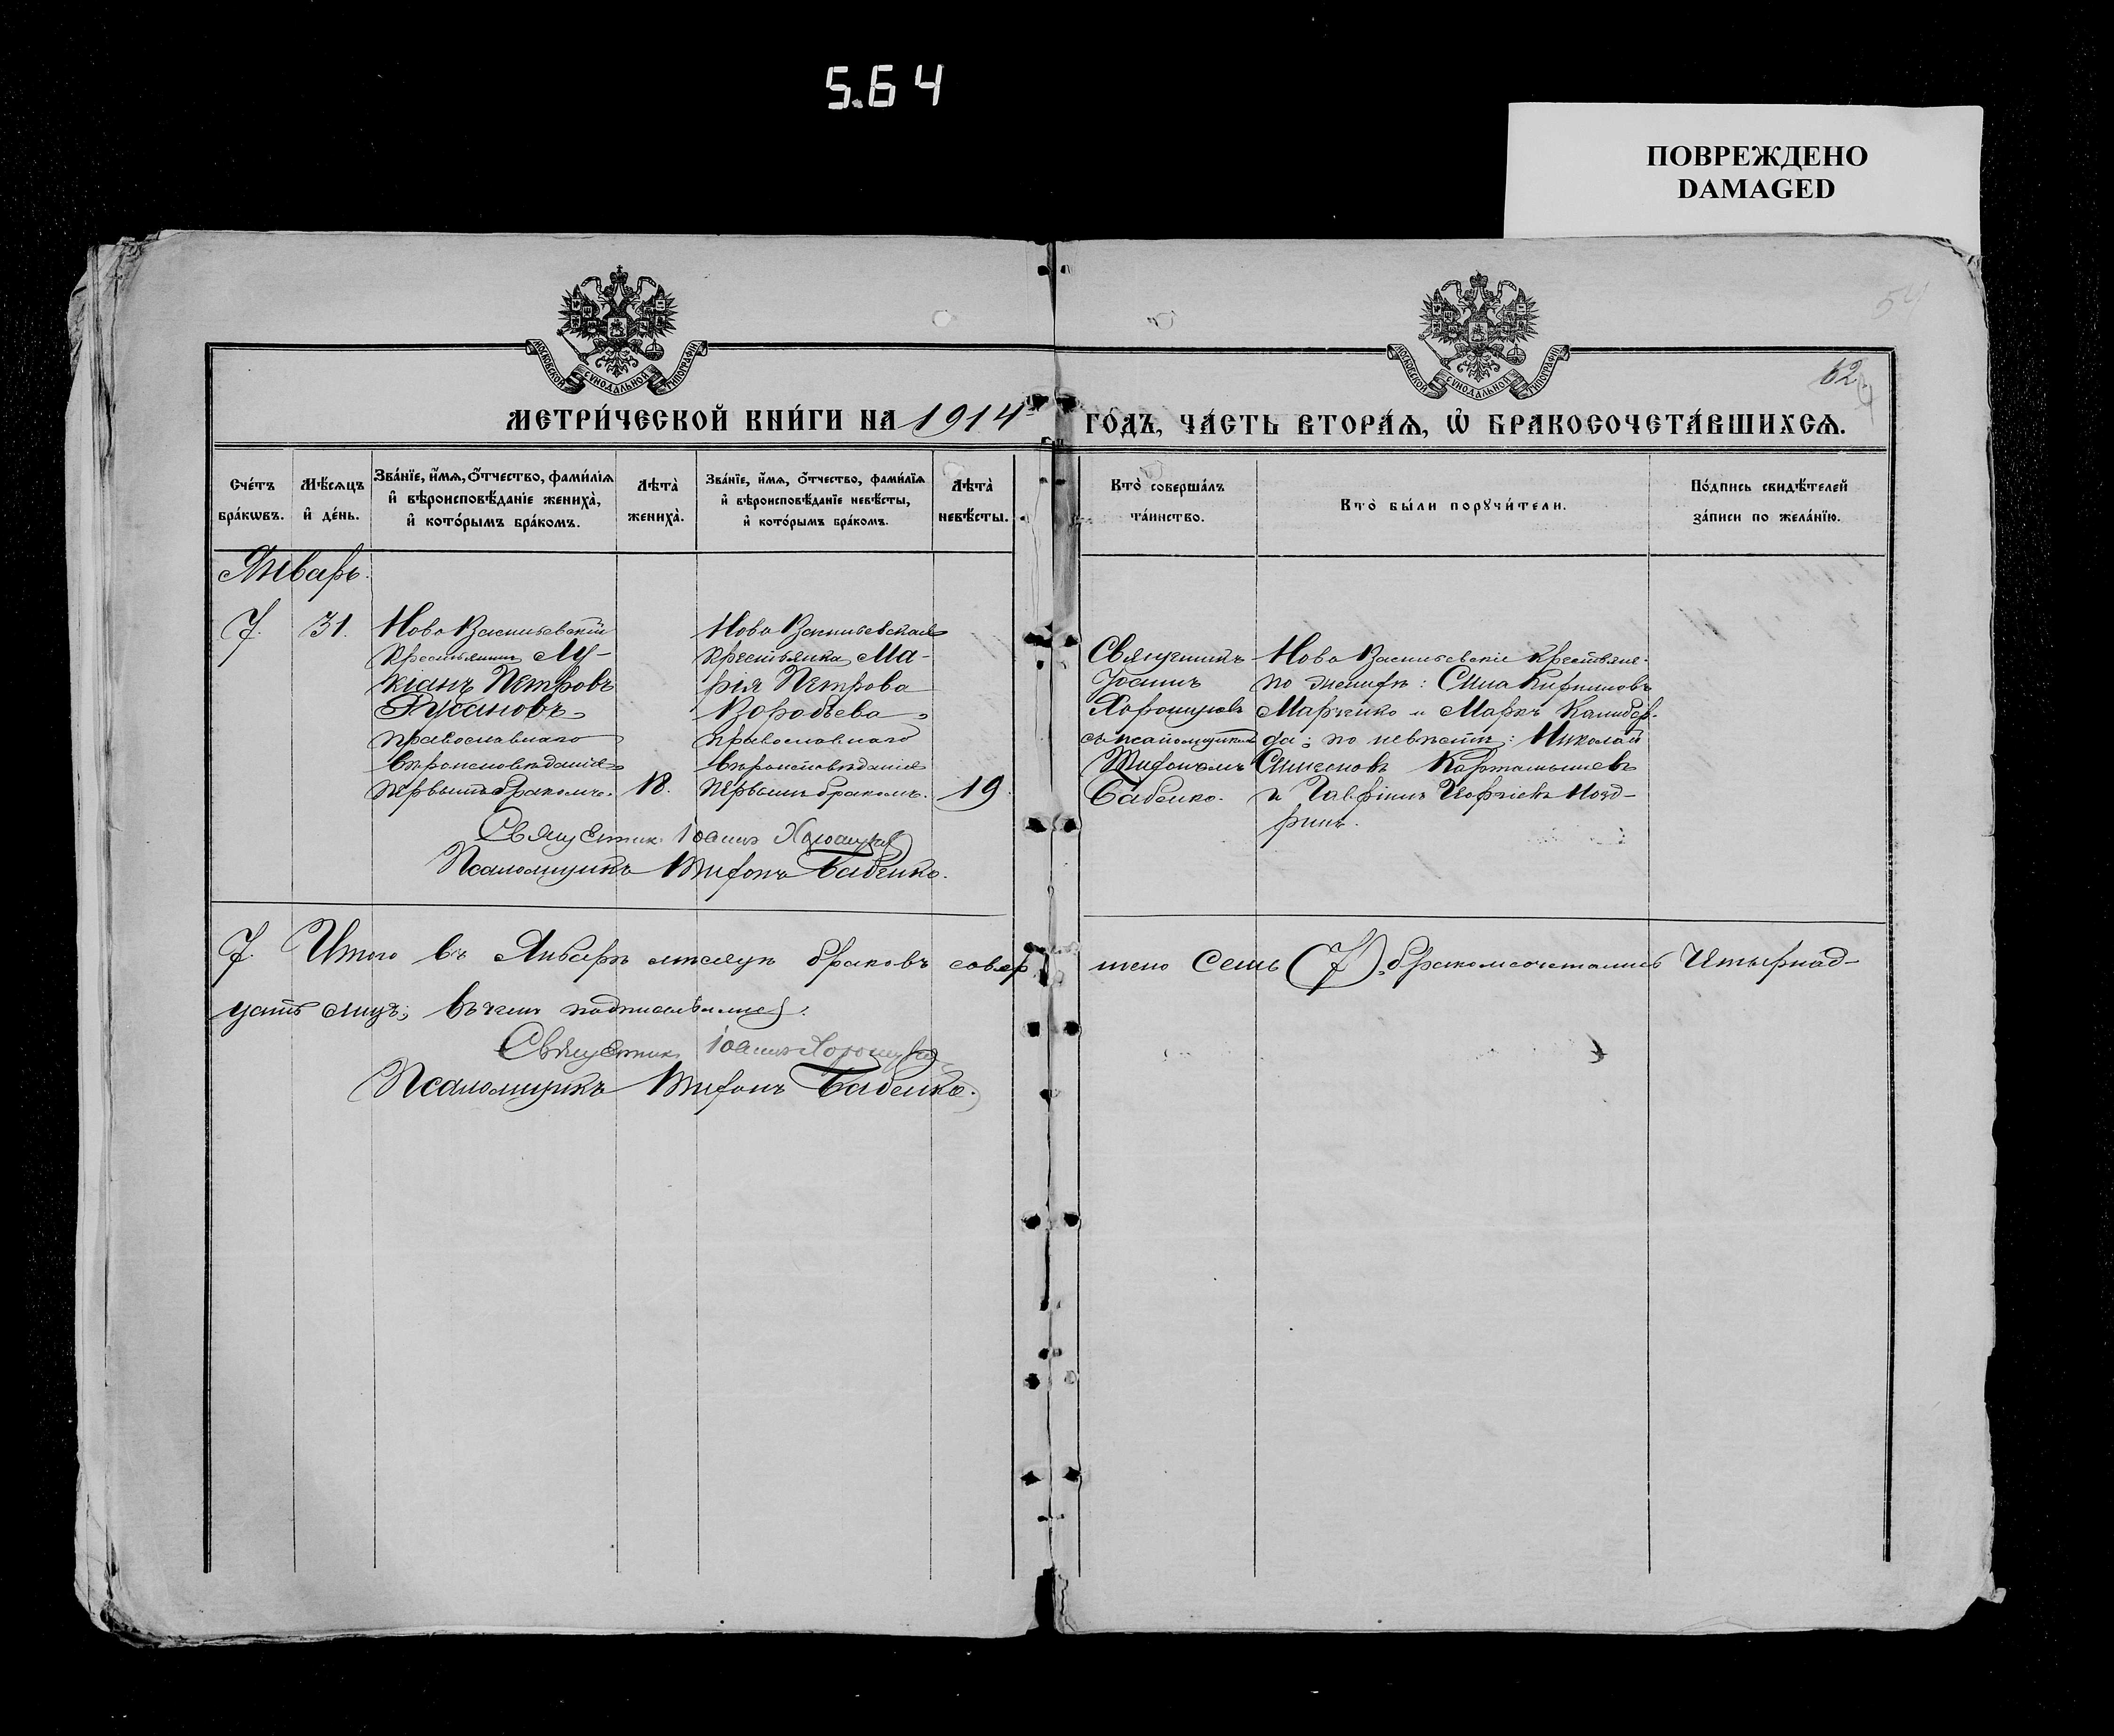 5.64
ПОВРЕЖДЕНО
DAMAGED
МОСКОВСКОЙ СУНОДАЛЬНОЙ ТИПОГРАФІИ
МОСКОВСКОЙ СУНОДАЛЬНОЙ ТИПОГРАФІИ
54
62
МЕТРИ́ЧЕСКОЙ КНИ́ГИ НА 1914
ГО́ДЪ, ЧА́СТЬ ВТОРА́Ѧ, Ѡ҆ БРАКОСОЧЕТА́ВШИХСѦ.
Сче́тъ бра́кѡвъ.
Мѣ́сѧцъ и҆ де́нь.
Зва́нїе, и҆́мѧ, ѻ҆́тчество, фами́лїѧ
и҆ вѣроисповѣ́данїе жениха̀,
и҆ кото́рымъ бра́комъ.
Лѣта̀ жениха̀.
Зва́нїе, и҆́мѧ, ѻ҆́тчество, фами́лїѧ
и҆ вѣроисповѣ́данїе невѣ́сты,
и҆ кото́рымъ бра́комъ.
Лѣта̀ невѣ́сты.
Кто̀ соверша́лъ
та́инство.
Кто̀ бы́ли порꙋчи́тели.
По́дпись свидѣ́телей
за́писи по жела́нїю.
Январь.
7.
31.
Ново Васильевскій
крестьянинъ Лу-
кіанъ Петровъ
Русановъ,
православнаго
вѣроисповѣданія,
первымъ бракомъ.
18.
Ново Васильевская
крестьянка Ма-
рія Петрова
Воробьева,
православнаго
вѣроисповѣданія
первымъ бракомъ.
19.
Священникъ
Іоаннъ
съ псаломщикомъ
Трифономъ
Бабенко.
Ново Васильевскіе крестьяне
по женихѣ: Сила
Марченко и Маркъ
да; по невѣстѣ: Николай
Симеоновъ
и Георгіевъ Нозд-
ринъ.
Священник Іоаннъ
Псаломщикъ Трифонъ Бабенко.
7. Итого въ Январѣ мѣсяцѣ браковъ совер-
шено семь (7), бракомсочетались четырнад-
цать лицъ; въ чемъ подписываемся:
Священник Іоаннъ
Псаломщикъ Трифонъ Бабенко.